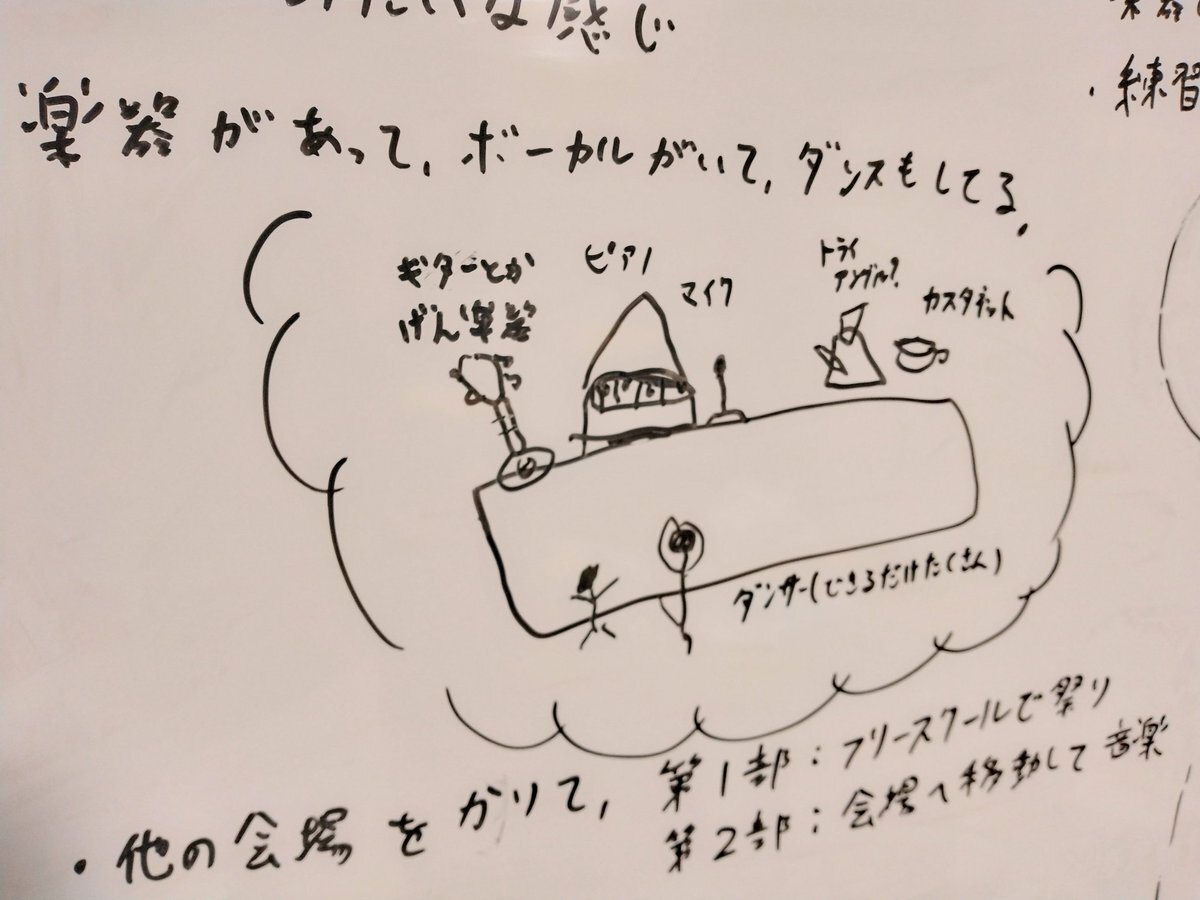 な感じ
・練習
楽器があって、ボーカルがいて、ダンスもしてる。
ギターとか
げん楽器
ピアノ
マイク
トライ
アングル?
カスタネット
ダンサー(できるだけたくさん)
・他の会場をかりて、第1部:フリースクールで祭り
第2部:会場へ移動して音楽